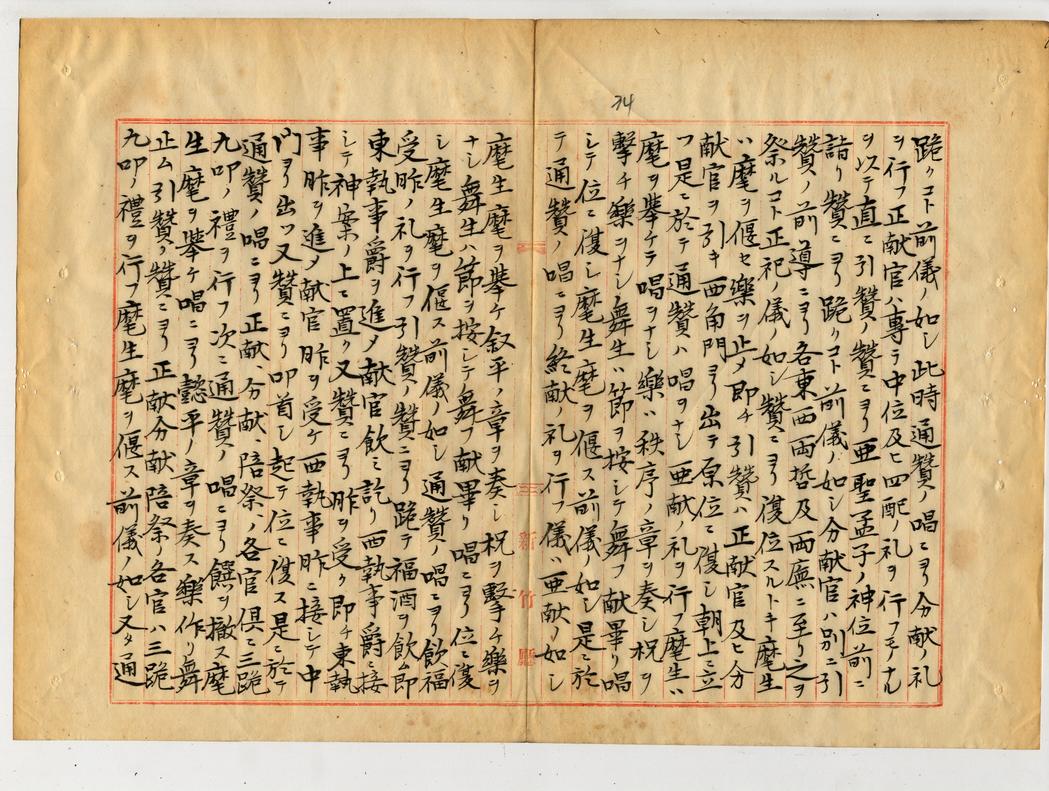 34
跪クコト前儀ノ如シ此時通贊ノ唱ニヨリ分献ノ礼
ヲ行フ正献官ハ專テ中位及ヒ四配ノ礼ヲ行フモノナル
ヲ以テ直ニ引贊ノ贊ニヨリ亜聖孟子ノ神位前ニ
詣リ贊ニヨリ跪クコト前儀ノ如シ分献官ハ別ニ引
贊ノ前導ニヨリ各東西両哲及両廡ニ至リ之ヲ
祭ルコト正祀ノ儀ノ如シ贊ニヨリ復位スルトキ麾生
ハ麾ヲ偃セ樂ヲ止メ即チ引贊ハ正献官及ヒ分
献官ヲ引キ西角門ヨリ出テ原位ニ復シ朝上ニ立
ツ是ニ於テ通贊ハ唱ヲナシ亜献ノ礼ヲ行フ麾生ハ
麾ヲ擧ケテ唱ヲナシ樂ハ秩序ノ章ヲ奏シ柷ヲ
擊チ樂ヲナシ舞生ハ節ヲ按シテ舞フ献畢リ唱
シテ位ニ復シ麾生麾ヲ偃ス前儀ノ如シ是ニ於
テ通贊ノ唱ニヨリ終献ノ礼ヲ行フ儀ハ亜献ノ如シ
新竹廳
麾生麾ヲ擧ケ叙平ノ章ヲ奏シ柷ヲ擊ケ樂ヲ
ナシ舞生ハ節ヲ按シテ舞フ献畢リ唱ニヨリ位ニ復
シ麾生麾ヲ偃ス前儀ノ如シ通贊ノ唱ニヨリ飲福
受胙ノ礼ヲ行フ引贊ノ贊ニヨリ跪テ福酒ヲ飲ム即
東執事爵ヲ進メ献官飲ミ訖リ西執事爵ニ接
シテ神案ノ上ニ置ク又贊ニヨリ胙ヲ受ク即チ東執
事胙ヲ進メ献官胙ヲ受ケ西執事胙ニ接シテ中
門ヨリ出ツ又贊ニヨリ叩首シ起テ位ニ復ス是ニ於テ
通贊ノ唱ニヨリ正献、分献、陪祭ノ各官俱ニ三跪
九叩ノ禮ヲ行フ次ニ通贊ノ唱ニヨリ饌ヲ撤ス麾
生麾ヲ擧ケ唱ニヨリ懿平ノ章ヲ奏ス樂作リ舞
止ム引贊ノ贊ニヨリ正献分献陪祭ノ各官ハ三跪
九叩ノ禮ヲ行フ麾生麾ヲ偃ス前儀ノ如シ又タ通